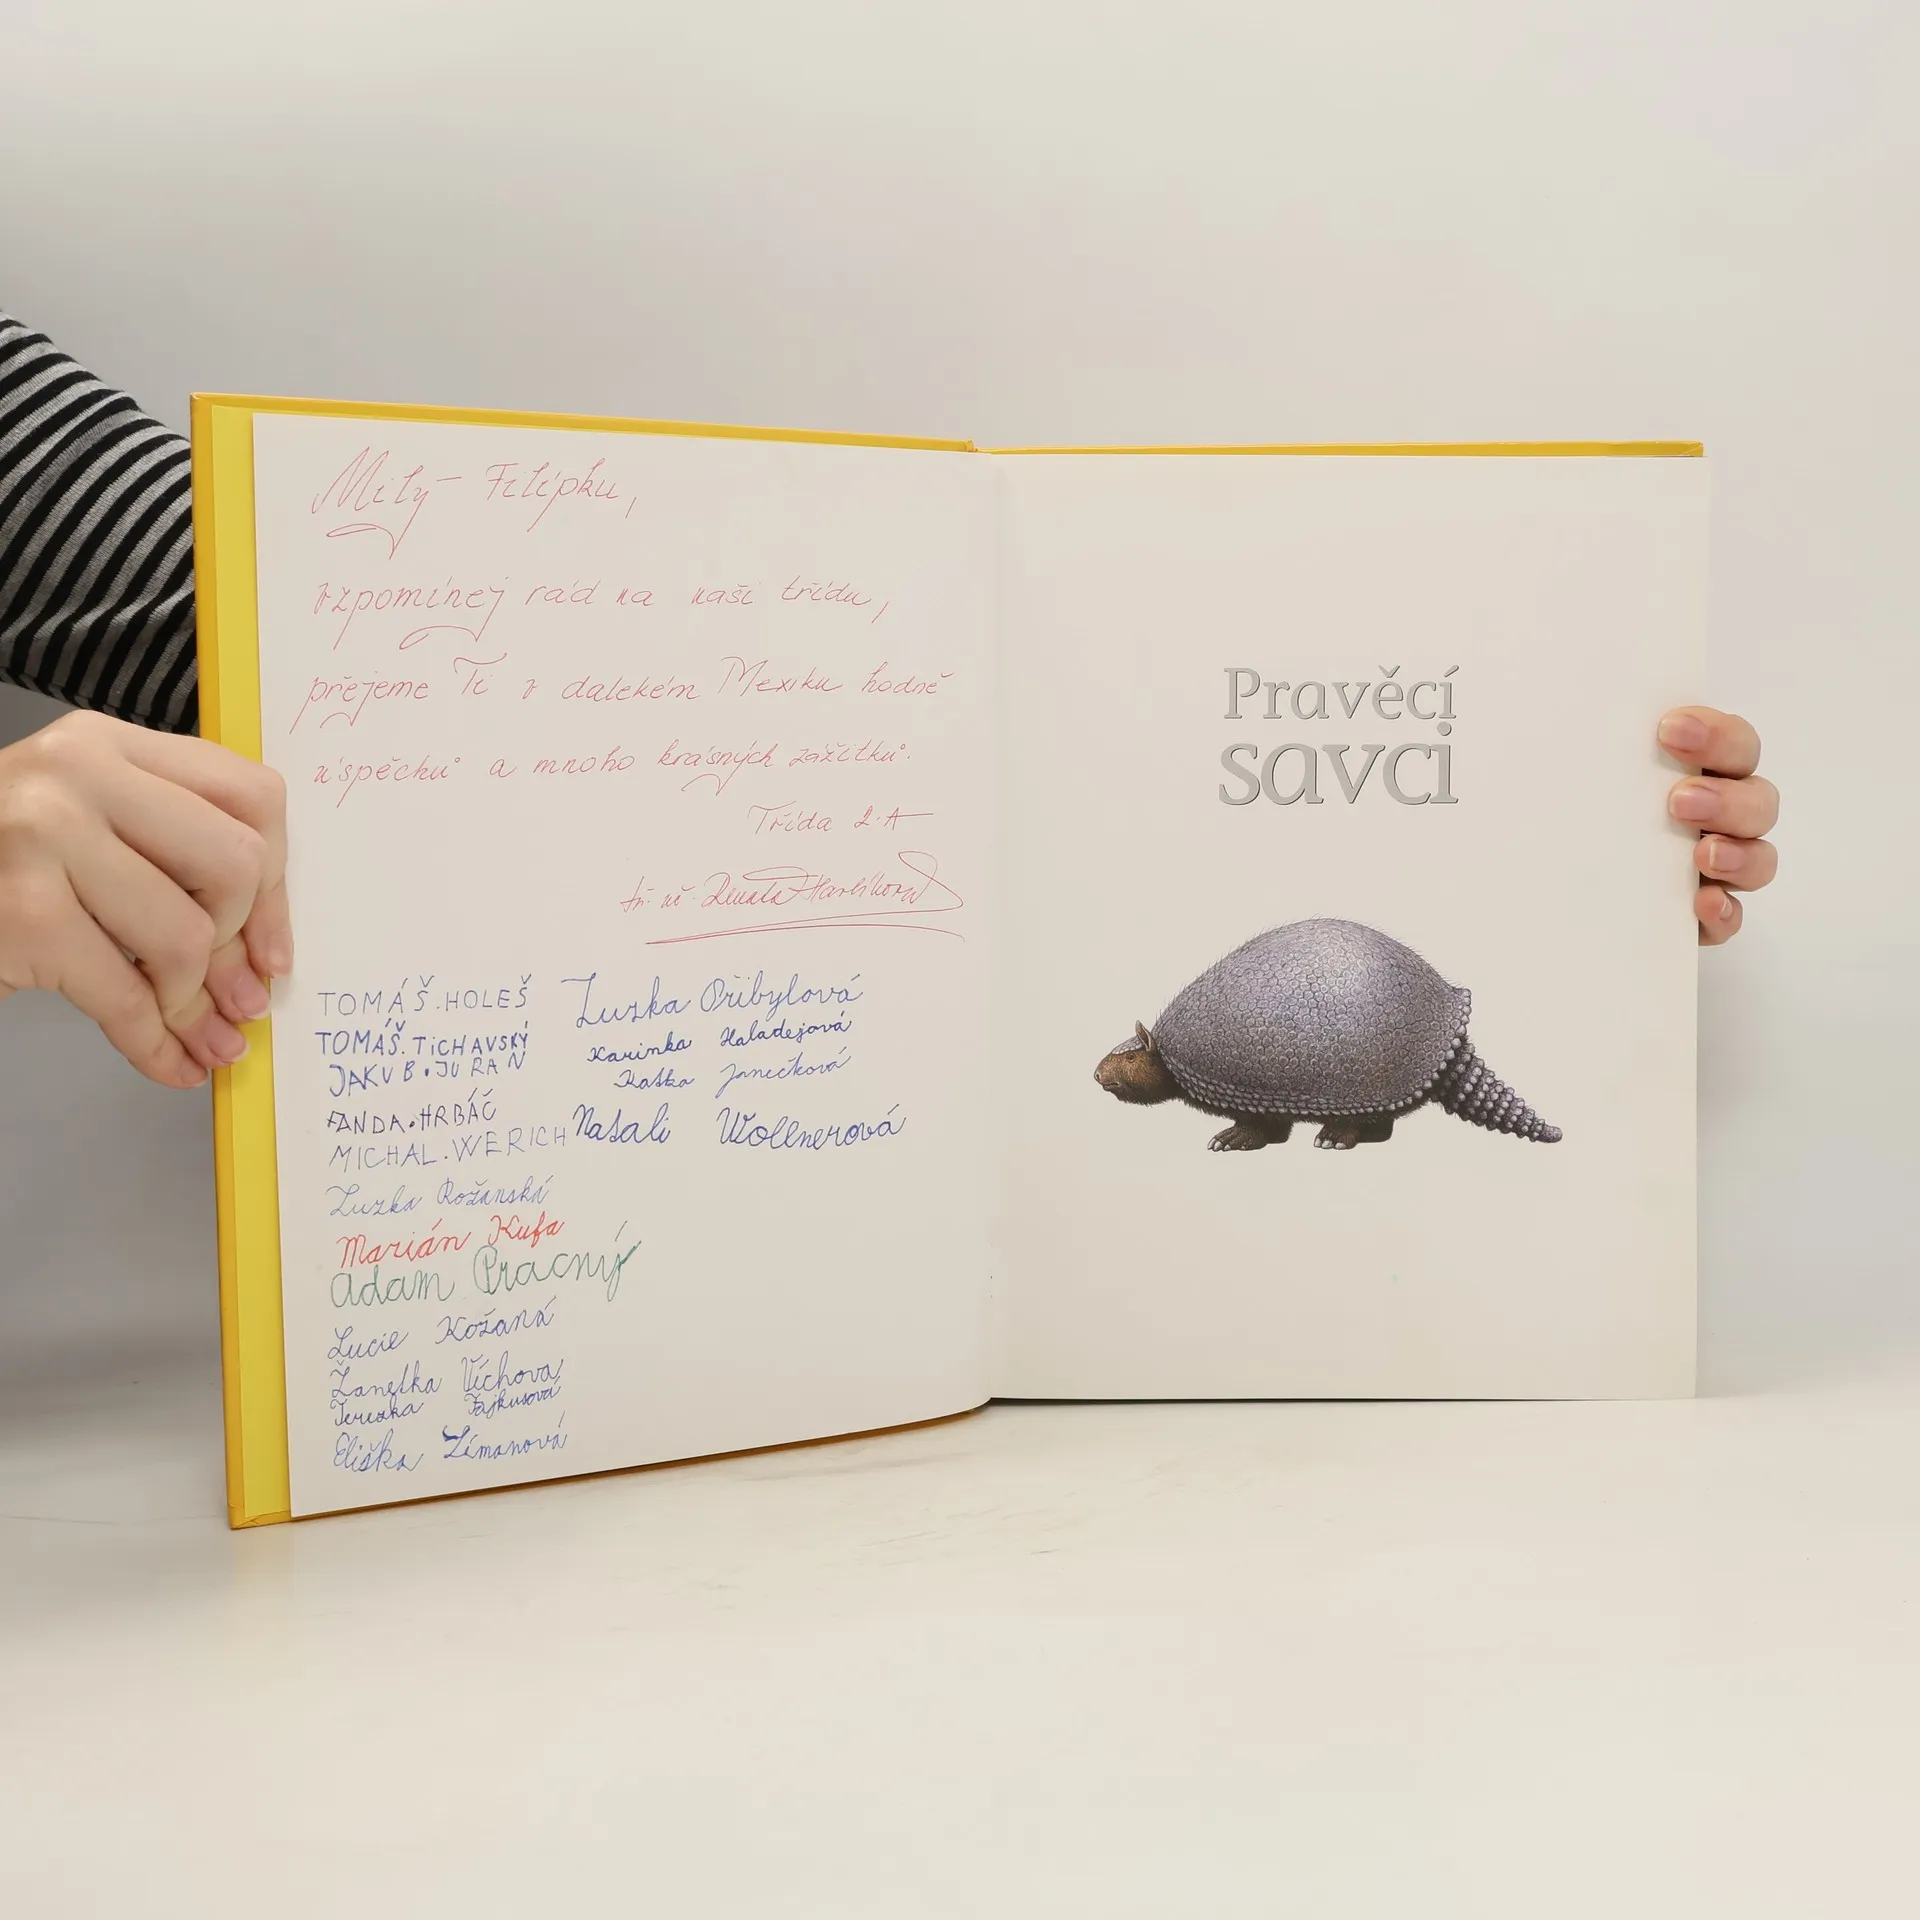 Milý Filípku,
vzpomínej rád na naši třídu,
přejeme Ti v dalekém Mexiku hodně
úspěchů a mnoho krásných zážitků.
Třída 2.A
tř. uč. Renata Havlíková
TOMÁŠ.HOLEŠ
TOMÁŠ.TiCHAVSKÝ
JAKUB.JURAŇ
FANDA.HRBÁČ
MICHAL.WERICH
Zuzka Rožanská
Marián Kufa
Adam Pracný
Lucie Kožaná
Žanetka Víchova
Terezka Fajkusová
Eliška Zímanová
Zuzka Přibylová
Karinka Haladejová
Katka Janečková
Natali Wollnerová
Pravěcí
savci